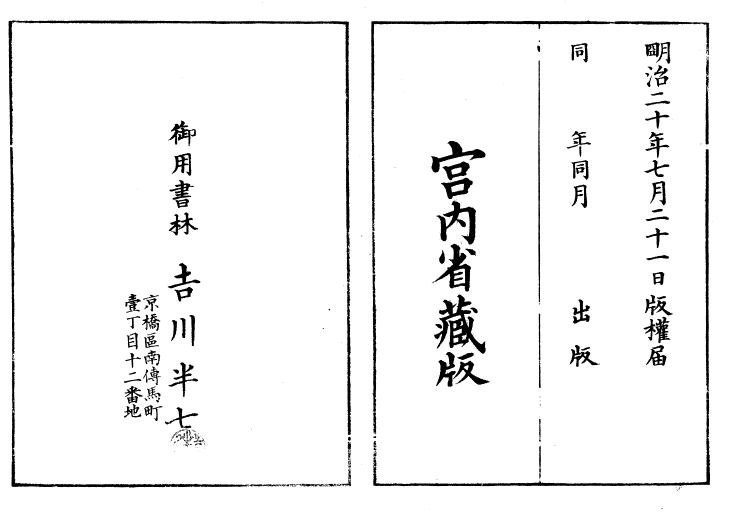 明治二十年七月二十一日版權届
同年同月出版
宮内省藏版
御用書林 吉川半七
京橋區南傳馬町
壹丁目十二番地